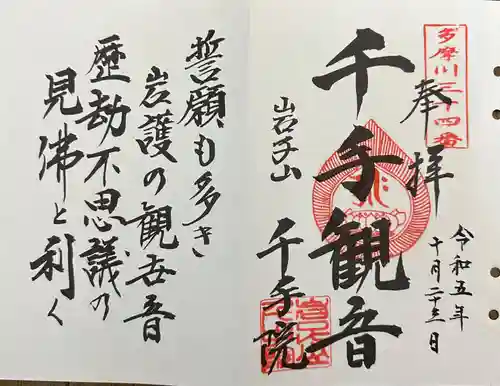 多摩川三十四番
奉拝
令和五年
十月二十三日
千手観音
岩子山
千手院
誓願も多き
岩護の観世音
歴劫不思議の
見佛と利く